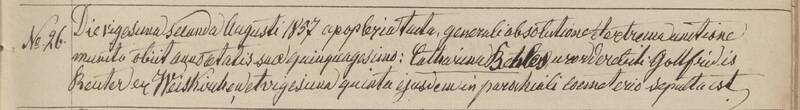 No. 26. Die vigesima secunda Augusti 1857 apoplexia tacta, generali absolutione et extrema unctione
munita obiit anno aetatis suae quinquagesimo: Catharina uxor derelicti Gottfridis
Reuter ex Weiskirchen, et vigesima quinta ejusdem in parochiali coemeterio sepulta est